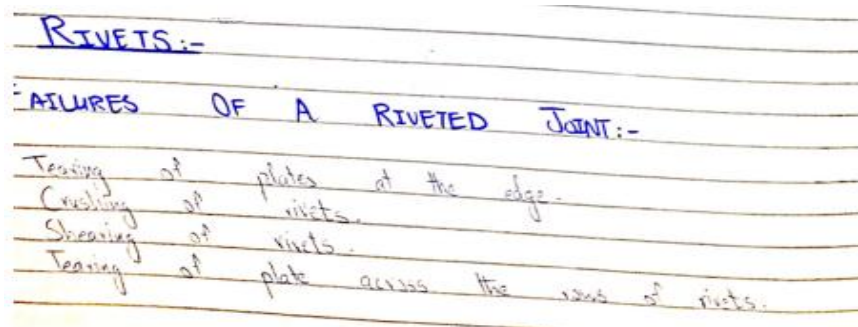 RIVETS:-
FAILURES OF A RIVETED JOINT:-
Tearing of plates at the edge.
Crushing of rivets.
Shearing of rivets.
Tearing of plate across the rows of rivets.